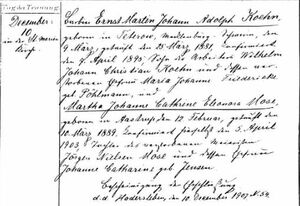 Tag der Trauung
Dezember
10
in der St. Marien
Kirche
Ernst Martin Johann Adolph Koehn,
geboren in Teterow, Mecklenburg Schwerin, den
9. März, getauft den 25. März 1881, konfirmiert
den 7. April 1895, Sohn des Arbeiters Wilhelm
Johann Christian Koehn und dessen
Ehefrau Maria Johanna Friedericke
geb. Pöhlmann, und
Martha Johanne Cathrine Eleonore Mose,
geboren in Aastrup den 12. Februar, getauft den
10. März 1889, konfirmiert den 5. April
1903, Tochter des
Jörgen Nielsen Mose und dessen Ehefrau
Johanne Catharine geb. Jensen.
Bescheinigung der Eheschließung
d.d. Hadersleben, 10. Dezember 1907. N. 54.